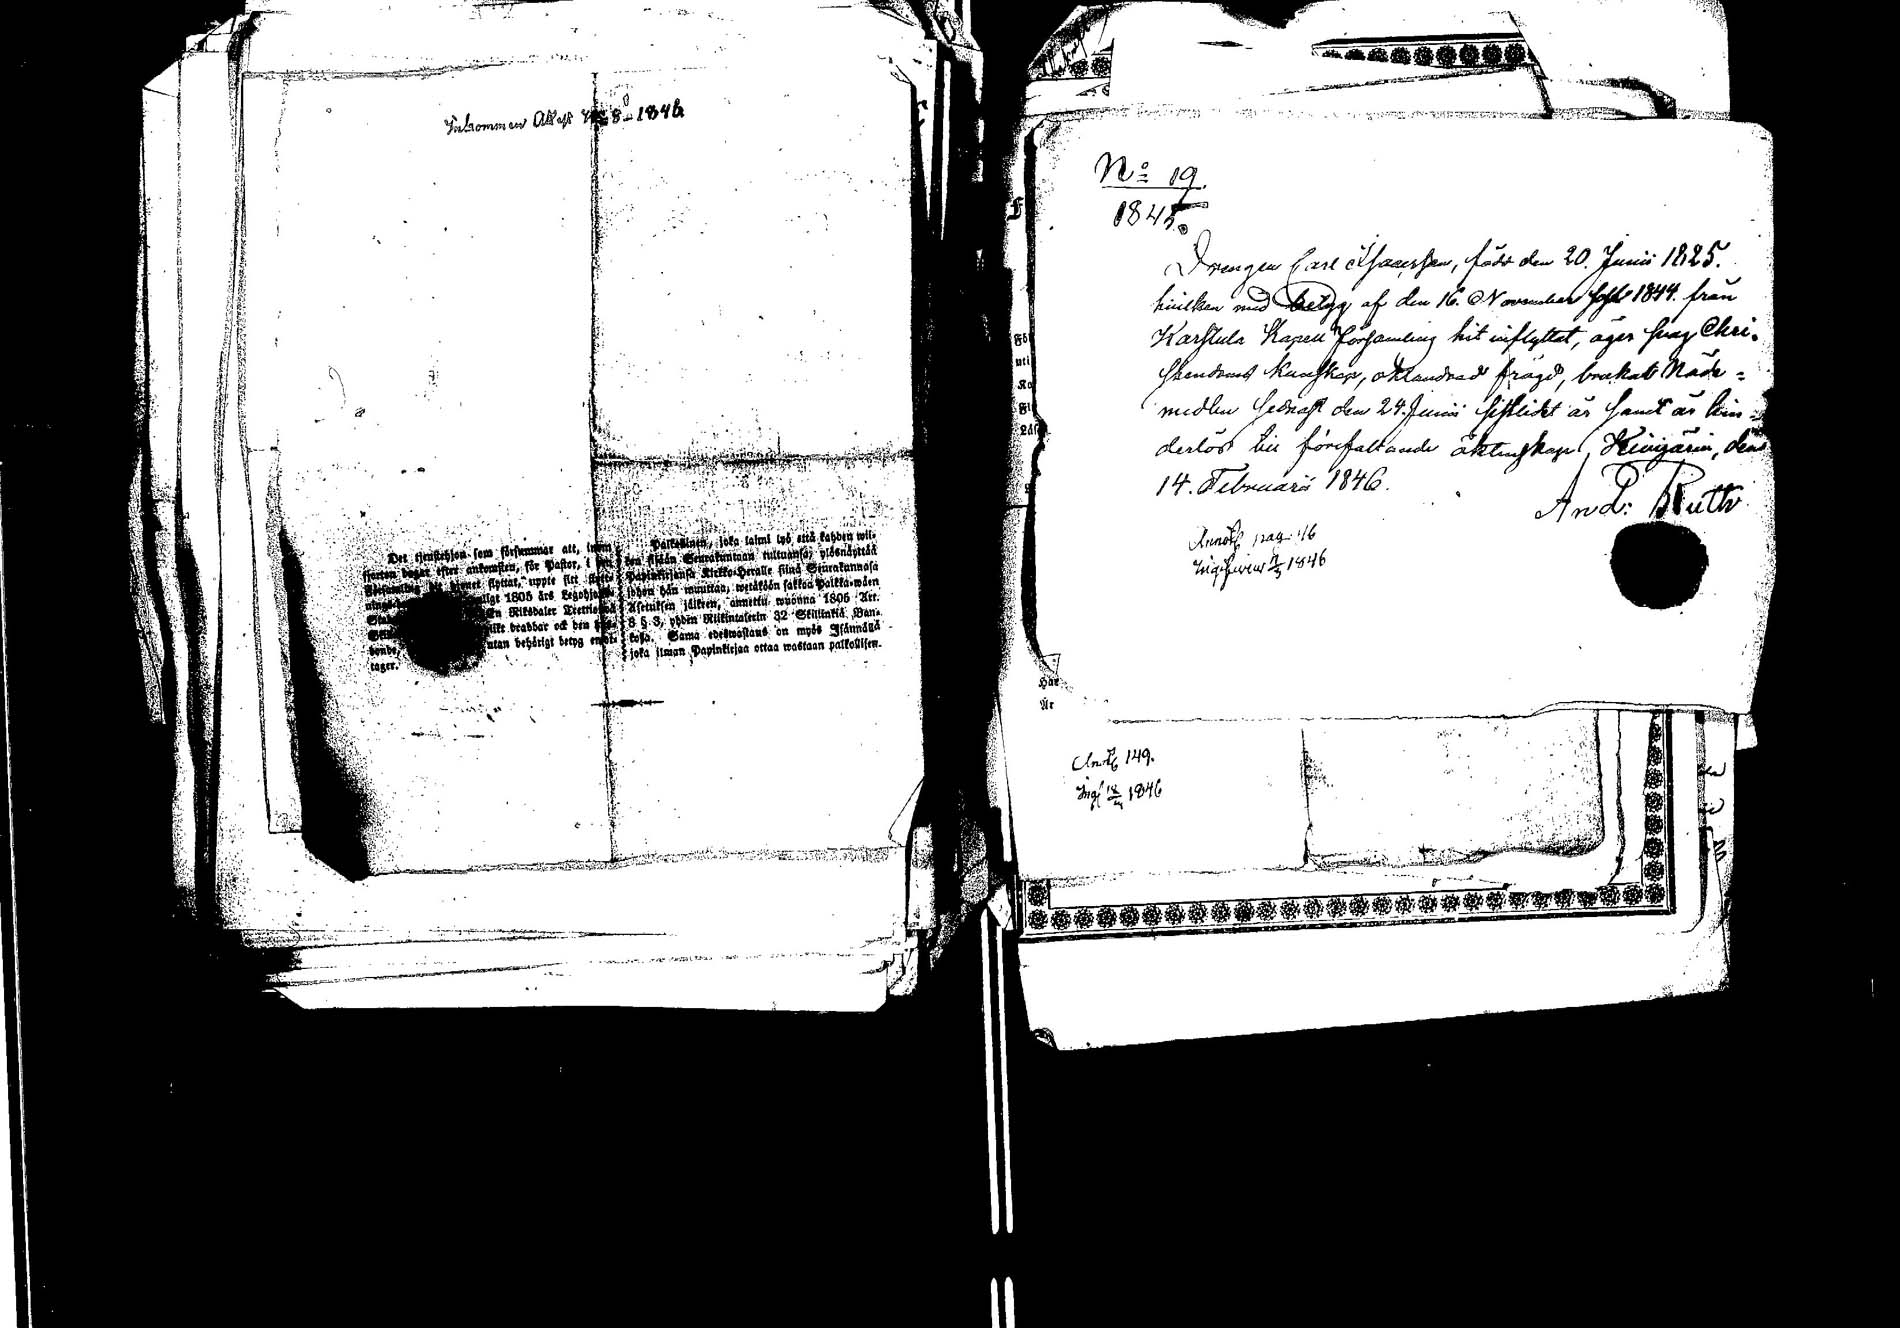 Inkommen Attest 1846
Det tjenstehjon som försummar att, inom
fjorton dagar efter ankomsten, för Pastor, i den
Församling dit hjonet flyttat, uppte sitt flytt-
ligt 1805 års Legohjons
En Riksdaler Trettio
like drabbar ock den hus-
bonde, utan behörigt betyg emot-
tager.
Palkollinen, joka laimi lyö että kahden wii-
kon sisään Seurakuntaan tultuansa, ylösnäyttää
Papinkirjansa Kirkko-Herralle siinä Seurakunnasa
johon hän muuttaa, wetäköön sakkoa Palkka-wäen
Asetuksen jälkeen, annettu wuonna 1805 Art.
8 § 3, yhden Riikintalerin 32 Skillinkiä Ban-
kosa. Sama edeswastaus on myös Isännällä
joka ilman Papinkirjaa ottaa wastaan palkollisen.
No 19.
1845.
Drengen Carl Isaacsson, född den 20. Junii 1825.
hvilken med betyg af den 16. November 1844. från
Karstula Kapell församling hit inflyttat, äger svag Chri-
stendoms kunskap, oklandrad frägd, brukat Nåde-
medlen sednast den 24. Junii sistledet år samt är hin-
derlös till förefallande äktenskap, Keuqärui, den
14. Februarii 1846.
And: Ruth
Annot. pag. 46
Ingifwen 1846
Har
År
Annot. 149.
Ingf 18 1846